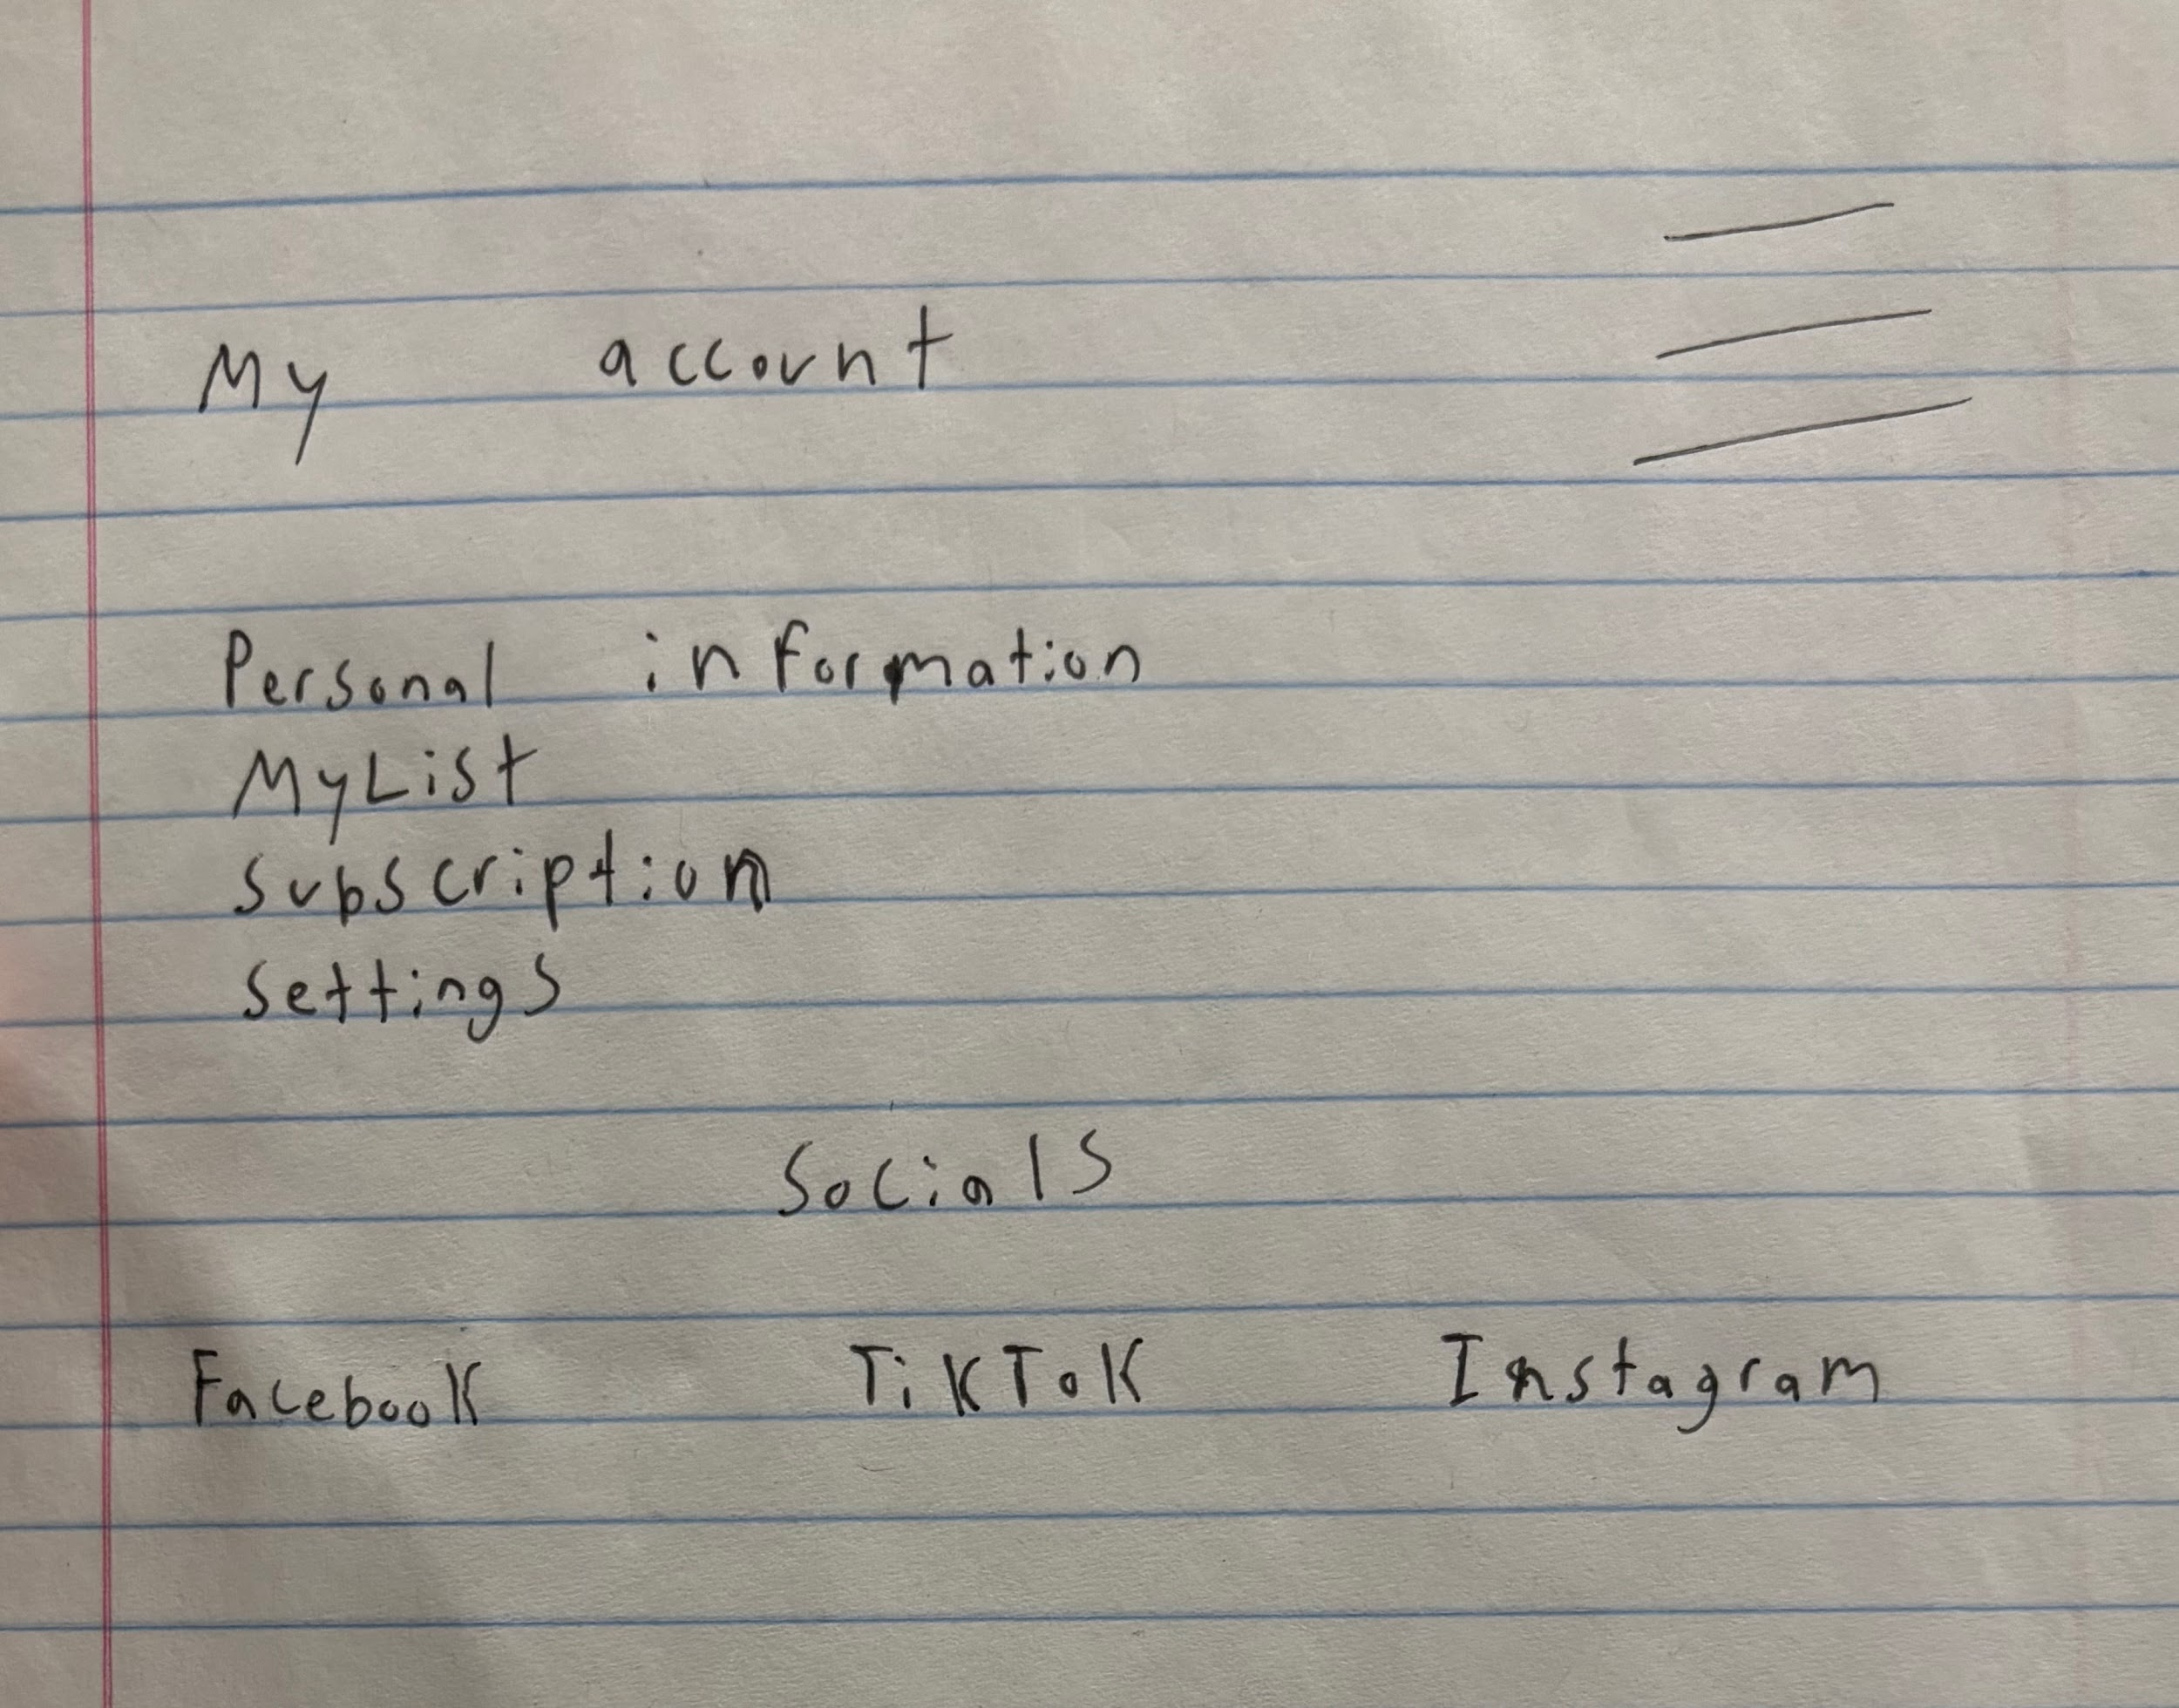 My account
Personal information
MyList
Subscription
Settings
Socials
Facebook TikTok Instagram